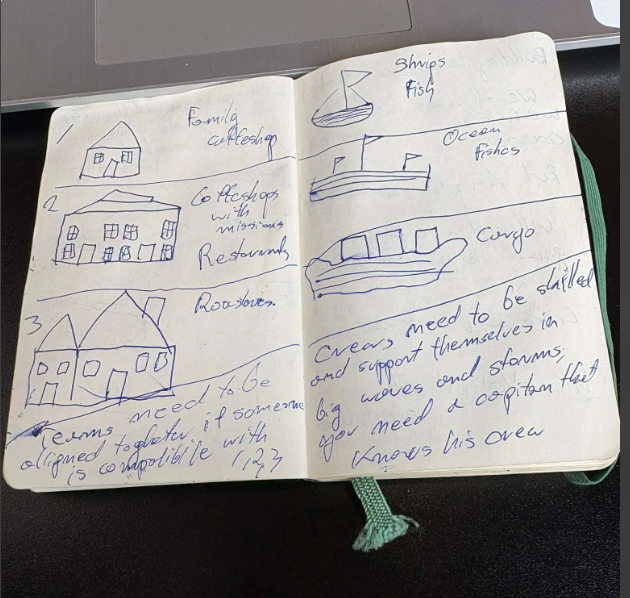 1
Family
coffeshop
2
Coffeshops
with
missions
Restaurants
3
Roasteries
Teams need to be
alligned togheter if someone
is compatible with
1,2,3
Ships
Fish
Ocean
Fishes
Cargo
Crews need to be skilled
and support themselves in
big waves and storms,
you need a capitan that
knows his crew